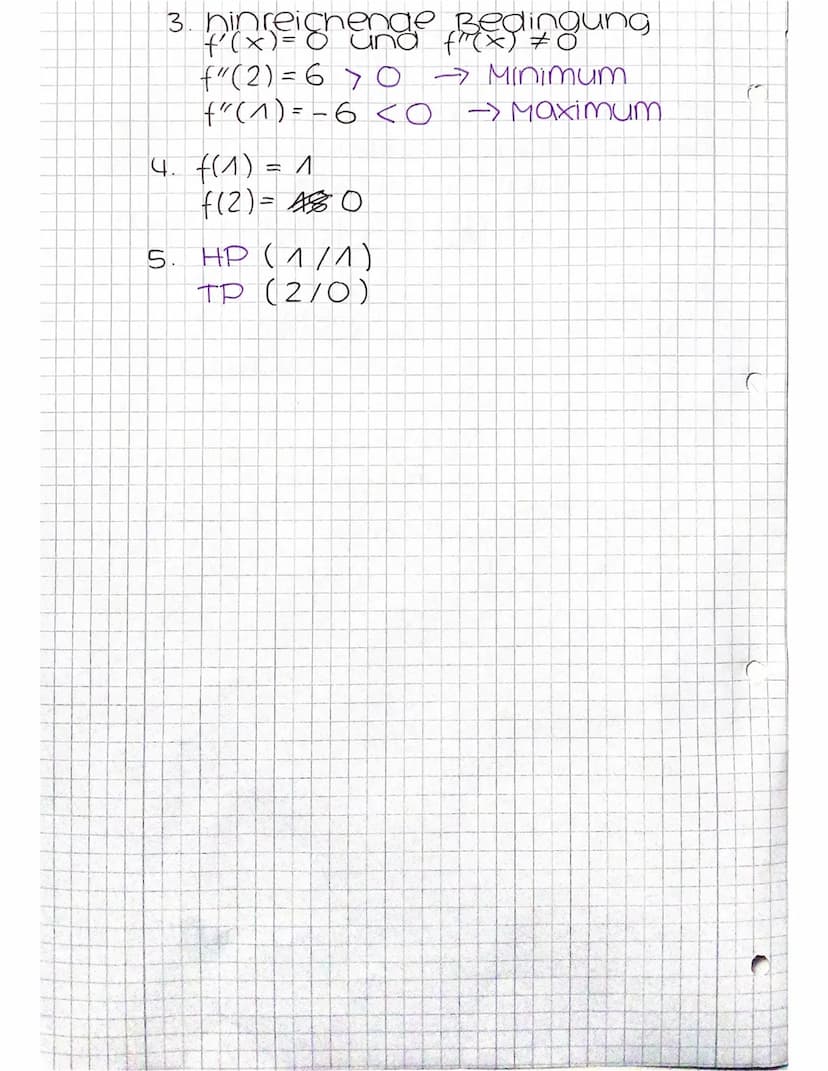 3. hinreichende Bedingung
f'(x)= 0 und f"(x) ≠ 0
f"(2) = 6 > 0 → Minimum
f"(1) = -6 < 0 → Maximum
4. f(1) = 1
f(2) = 0
5. HP (1/1)
TP (2/0)